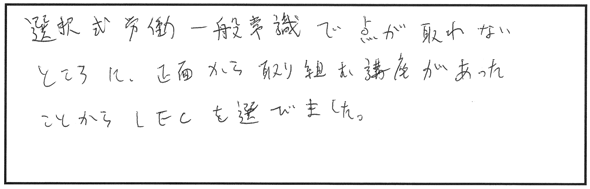 選択式労働一般常識で点が取れない
ところに、正面から取り組む講座があった
ことからLECを選びました。